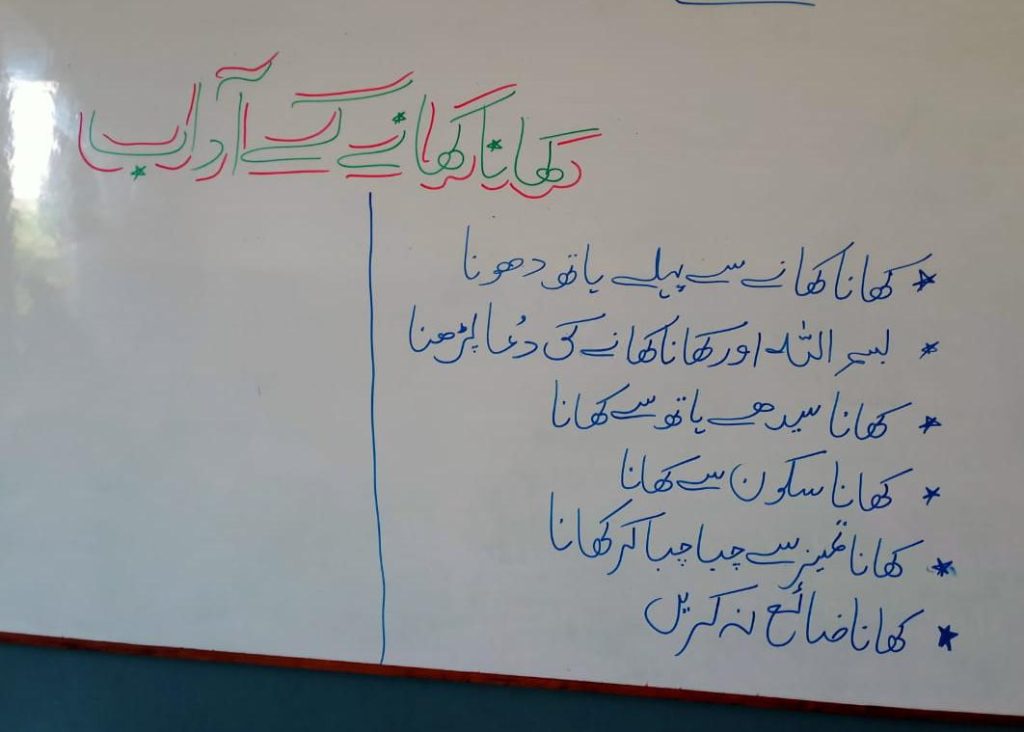 کھانا کھانے کے آداب
* کھانا کھانے سے پہلے ہاتھ دھونا
* بسم اللہ اور کھانا کھانے کی دُعا پڑھنا
* کھانا سیدھے ہاتھ سے کھانا
* کھانا سکون سے کھانا
* کھانا تمیز سے چبا چبا کر کھانا
* کھانا ضائع نہ کریں